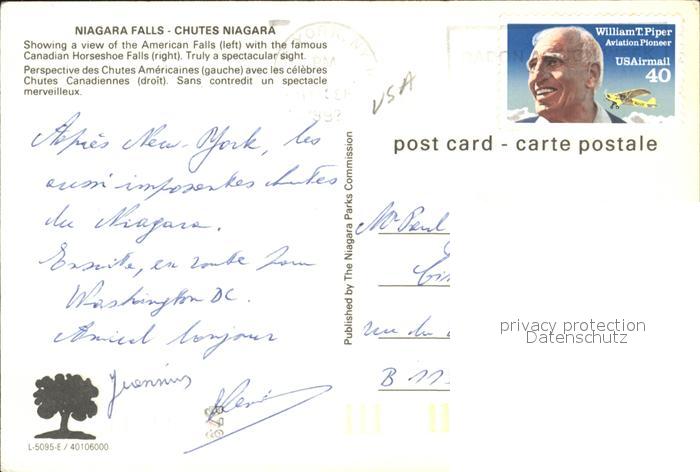 NIAGARA FALLS - CHUTES NIAGARA
Showing a view of the American Falls (left) with the famous
Canadian Horseshoe Falls (right). Truly a spectacular sight.
Perspective des Chutes Américaines (gauche) avec les célèbres
Chutes Canadiennes (droit). Sans contredit un spectacle
merveilleux.
William T. Piper
Aviation Pioneer
USAirmail
40
USA
post card - carte postale
Après New-York, les
aussi imposantes chutes
du Niagara.
Ensuite, en route pour
Washington DC.
Amical bonjour
Published by The Niagara Parks Commission
Mr Paul
rue du
B-11
privacy protection
Datenschutz
L-5095-E / 40106000